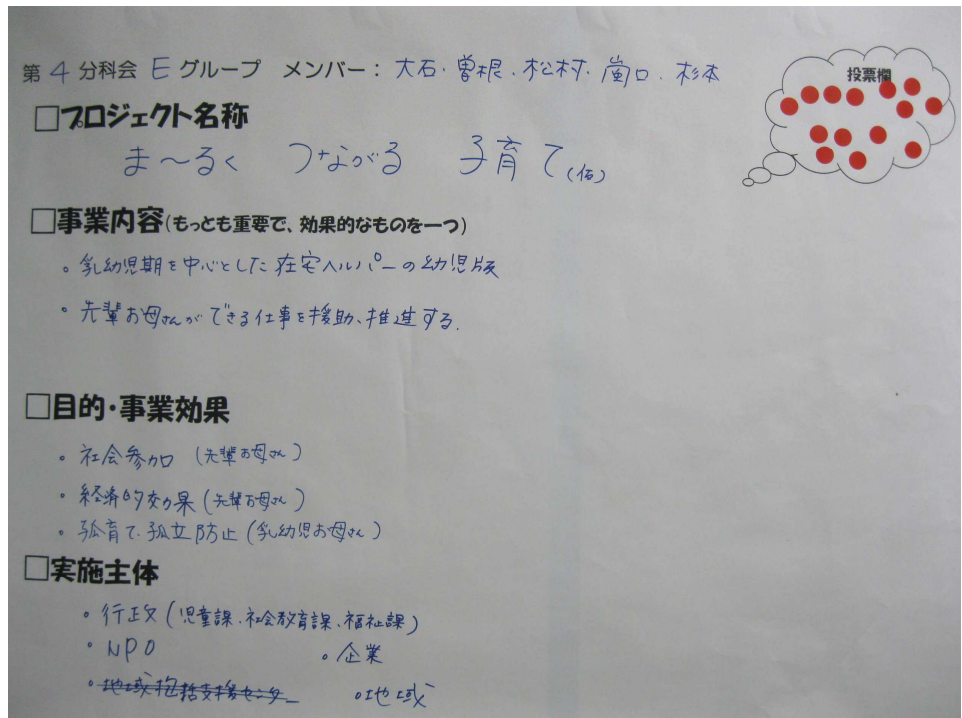 第 4 分科会 E グループ メンバー: 大石・曽根・松村・崗口・杉本
投票欄
□プロジェクト名称
ま〜るく つながる 子育て(仮)
□事業内容(もっとも重要で、効果的なものを一つ)
。乳幼児期を中心とした在宅ヘルパーの幼児版
・先輩お母さんができる仕事を援助、推進する.
□目的・事業効果
。社会参加 (先輩お母さん)
・経済的効果(先輩お母さん)
・孤育て・孤立防止(乳幼児お母さん)
□実施主体
・行政(児童課、社会教育課、福祉課)
・NPO ・企業
・地域包括支援センター ・地域